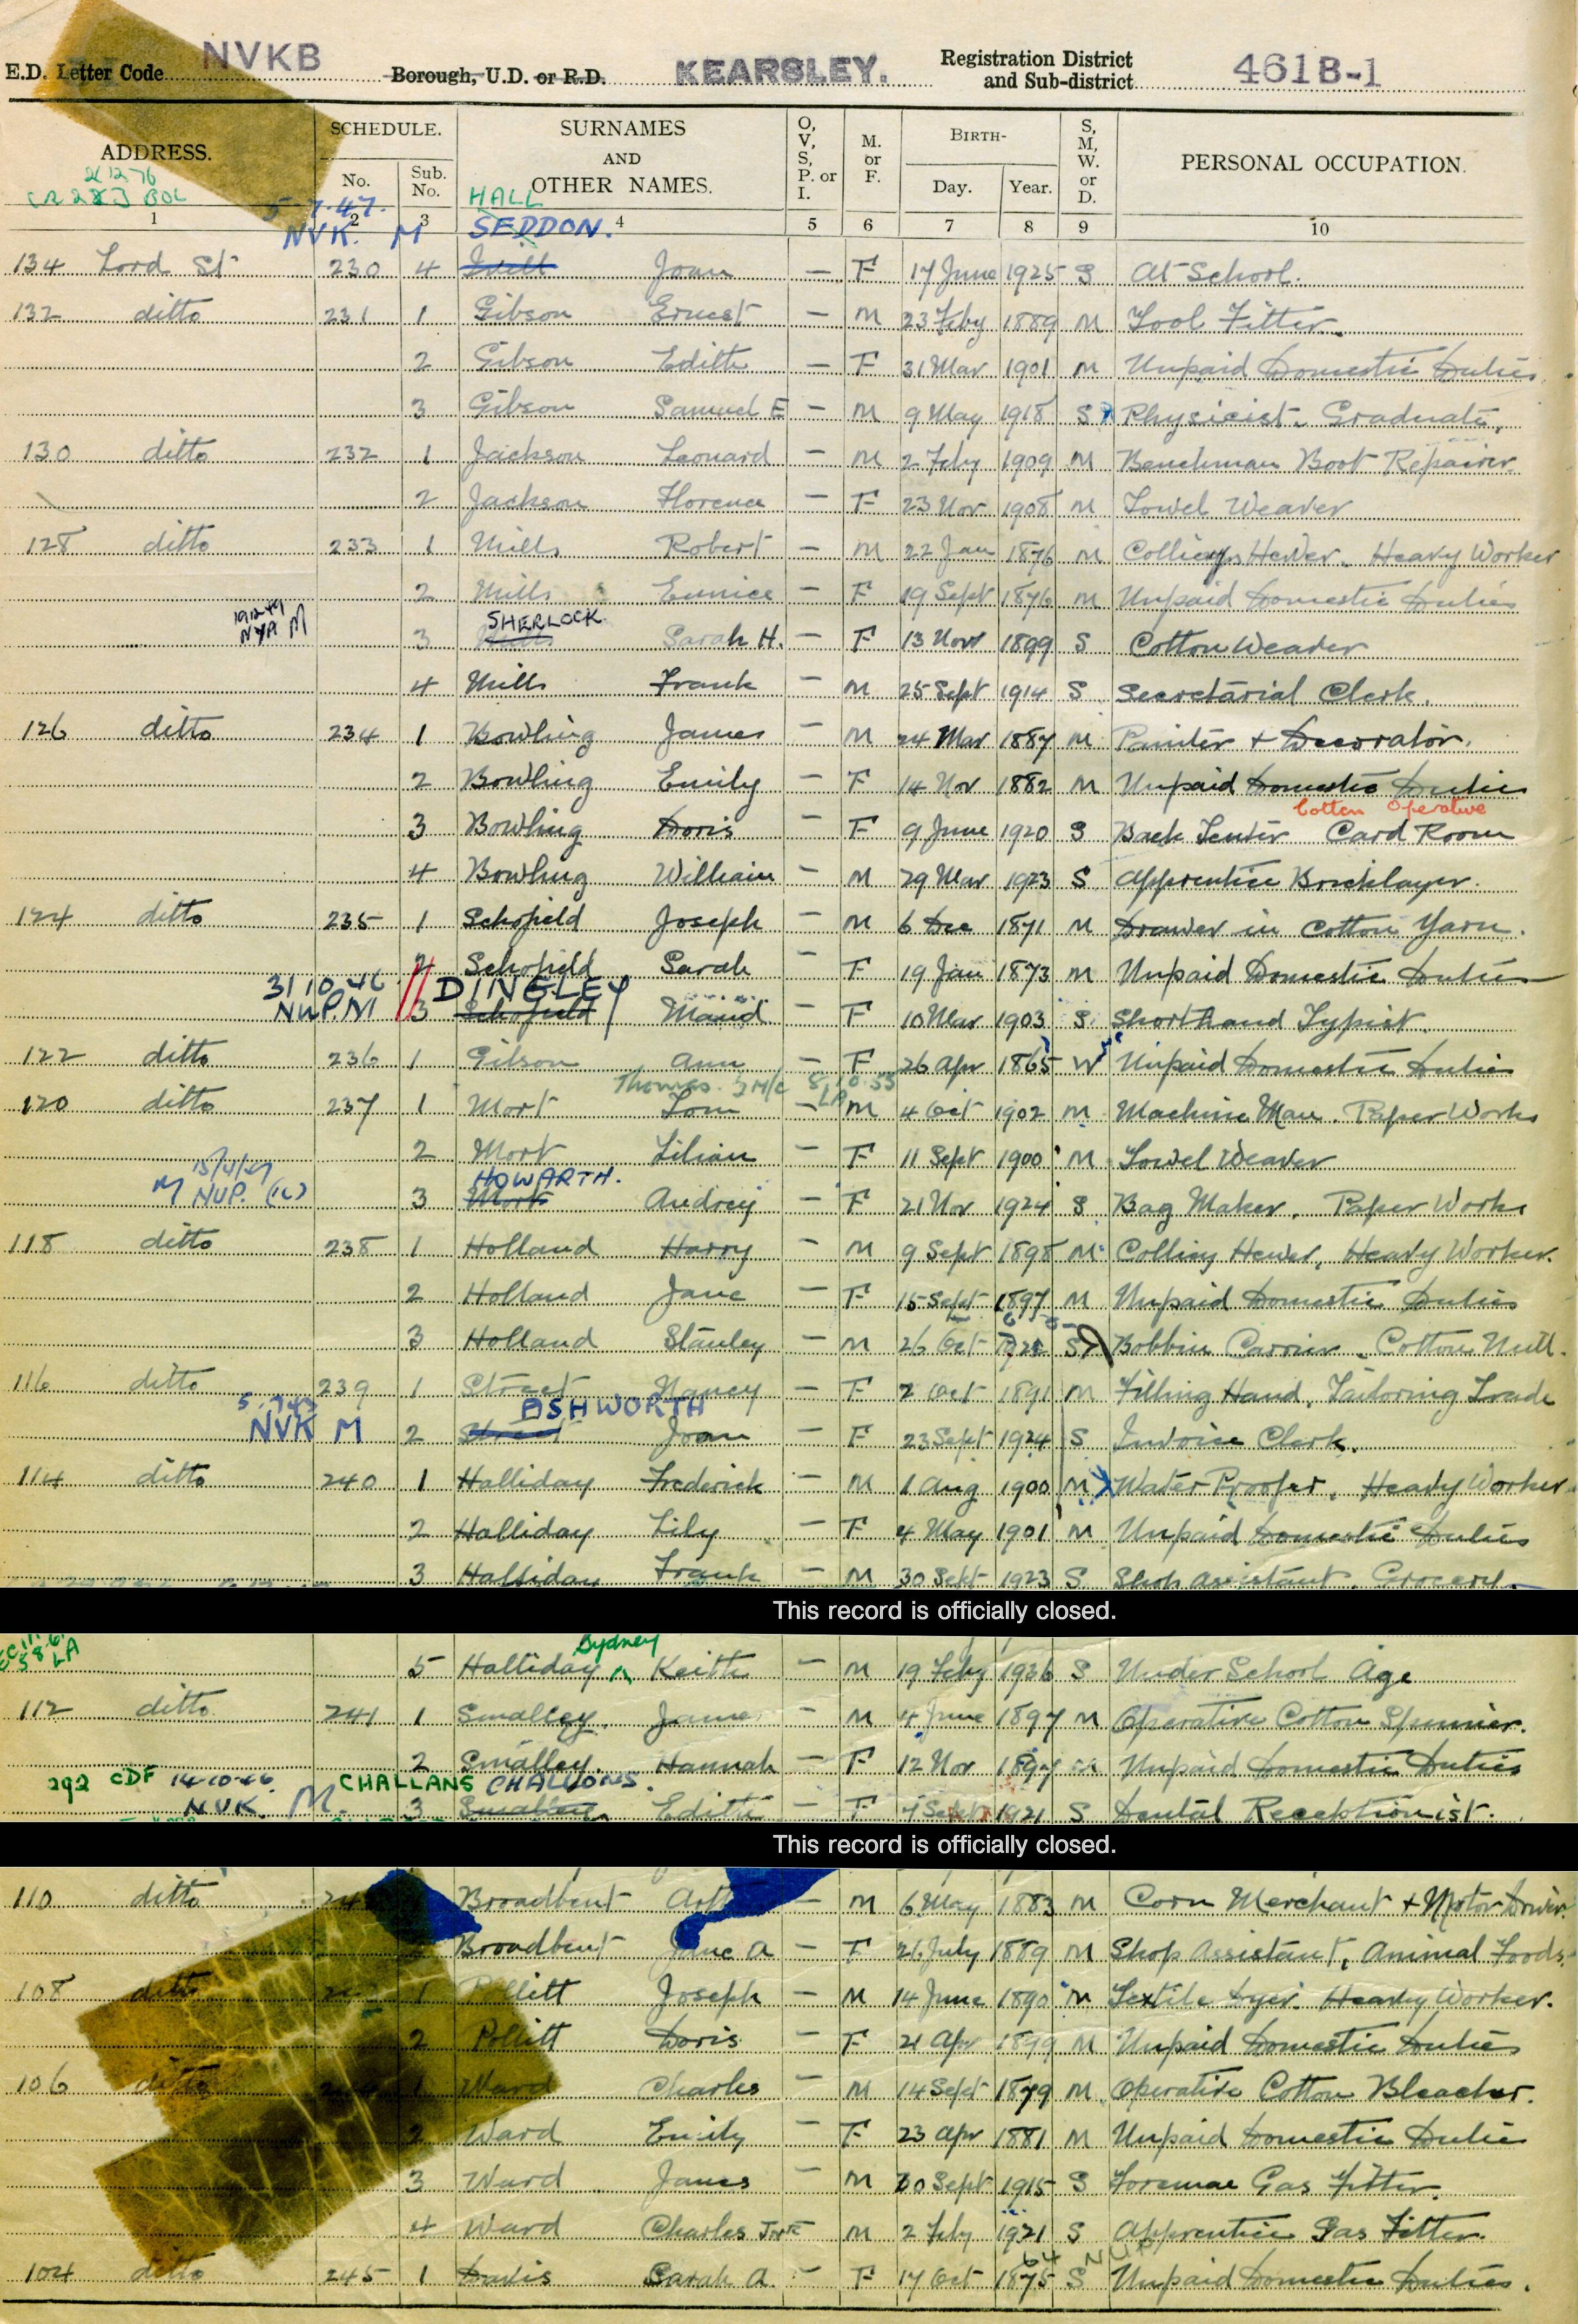 E.D. Letter Code NVKB Borough, U.D. or R.D. KEARSLEY. Registration District and Sub-district 461B-1
ADDRESS. SCHEDULE. No. Sub. No. SURNAMES AND OTHER NAMES. O, V, S, P. or I. M. or F. BIRTH- Day. Year. S, M, W. or D. PERSONAL OCCUPATION.
2/12/76
BOL
HALL
1 2 3 4 5 6 7 8 9 10
5.7.47.
NVK. M SEDDON.
134 Lord St 230 4 Joan — F 17 June 1925 S At School.
132 ditto 231 1 Gibson Ernest — M 23 Feby 1889 M Tool Fitter.
2 Gibson Edith — F 31 Mar 1901 M Unpaid Domestic Duties
3 Gibson Samuel E — M 9 May 1918 S Physicist. Graduate.
130 ditto 232 1 Jackson Leonard — M 2 Feby 1909 M Benchman Boot Repairer
2 Jackson Florence — F 23 Nov 1908 M Towel Weaver
128 ditto 233 1 Mills Robert — M 22 Jan 1876 M Colliery Hewer. Heavy Worker
2 Mills Eunice — F 19 Sept 1876 M Unpaid Domestic Duties
NYA M SHERLOCK
3 Mills Sarah H. — F 13 Nov 1899 S Cotton Weaver
4 Mills Frank — M 25 Sept 1914 S Secretarial Clerk.
126 ditto 234 1 Bowling James — M 24 Mar 1887 M Painter + Decorator.
2 Bowling Emily — F 14 Nov 1882 M Unpaid Domestic Duties
Cotton Operative
3 Bowling Doris — F 9 June 1920 S Back Tenter Card Room
4 Bowling William — M 29 Mar 1923 S Apprentice Bricklayer.
124 ditto 235 1 Schofield Joseph — M 6 Dec 1871 M Drawer in Cotton Yarn.
2 Schofield Sarah — F 19 Jan 1873 M Unpaid Domestic Duties
31 10 46 DINGLEY
NUP M 3 Schofield Maud — F 10 Mar 1903 S Shorthand Typist.
122 ditto 236 1 Gilson Ann — F 26 Apr 1865 W Unpaid Domestic Duties
Thomas. 8.10.55 LA
120 ditto 237 1 Mort Tom — M 4 Oct 1902 M Machine Man. Paper Works
2 Mort Lilian — F 11 Sept 1900 M Towel Weaver
M NUP. HOWARTH.
3 Mort Audrey — F 21 Nov 1924 S Bag Maker. Paper Works
118 ditto 238 1 Holland Harry — M 9 Sept 1898 M Colliery Hewer, Heavy Worker.
2 Holland Jane — F 15 Sept 1897 M Unpaid Domestic Duties
3 Holland Stanley — M 26 Oct S Bobbin Carrier. Cotton Mill.
116 ditto 239 1 Street Nancy — F 2 Oct 1891 M Filling Hand, Tailoring Trade
ASHWORTH
NVK M 2 Street Joan — F 23 Sept 1924 S Invoice Clerk.
114 ditto 240 1 Halliday Frederick — M 1 Aug 1900 M Water Proofer. Heavy Worker
2 Halliday Lily — F 4 May 1901 M Unpaid Domestic Duties
3 Halliday Frank — M 30 Sept 1923 S Shop assistant. Grocery.
This record is officially closed.
Sydney
LA 5 Halliday Keith — M 19 Feby 1936 S Under School Age
112 ditto 241 1 Smalley James — M 4 June 1897 M Operative Cotton Spinner.
2 Smalley Hannah — F 12 Nov 1897 M Unpaid Domestic Duties
292 CDF 14-10-46 CHALLANS CHALLONS.
NVK. M. 3 Smalley Edith — F 7 Sept 1921 S Dental Receptionist.
This record is officially closed.
110 ditto Broadbent — M 6 May 1883 M Corn Merchant + Motor Driver.
Broadbent Jane A — F 21 July 1889 M Shop Assistant, Animal Foods.
108 ditto 1 Pollitt Joseph — M 14 June 1890 M Textile Dyer. Heavy Worker.
2 Pollitt Doris — F 21 Apr 1899 M Unpaid Domestic Duties
106 ditto 1 Ward Charles — M 14 Sept 1879 M Operative Cotton Bleacher.
2 Ward Emily — F 23 Apr 1881 M Unpaid Domestic Duties
3 Ward James — M 30 Sept 1915 S Foreman Gas Fitter.
4 Ward Charles — M 2 Feby 1921 S Apprentice Gas Fitter.
64 NUP
104 ditto 245 1 Davis Sarah A. — F 17 Oct 1875 S Unpaid Domestic Duties.